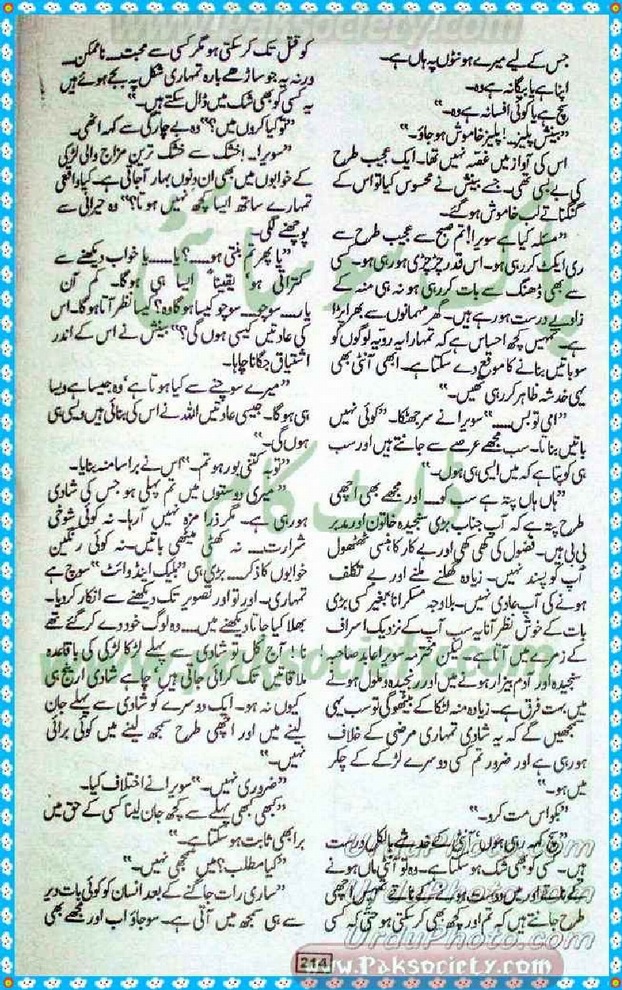 www.Paksociety.com
جس کے لیے میرے ہونٹوں پہ ہاں ہے۔
اپنا ہے یا بیگانہ ہے وہ۔
سچ ہے یا کوئی افسانہ ہے وہ۔"
"بینش پلیز۔! پلیز خاموش ہو جاؤ۔"
اس کی آواز میں غصہ نہیں تھا۔ ایک عجیب طرح
کی بے بسی تھی۔ جسے بینش نے محسوس کیا تو اس کے
گنگناتے لب خاموش ہو گئے۔
"مسئلہ کیا ہے سویرا! تم صبح سے عجیب طرح سے
ری ایکٹ کر رہی ہو۔ اس قدر چڑچڑی ہو رہی ہو۔ کسی
سے بھی ڈھنگ سے بات کر رہی ہو نہ ہی منہ کے
زاویے درست ہو رہے ہیں۔ گھر مہمانوں سے بھرا پڑا
ہے۔ تمہیں کچھ احساس ہے کہ تمہارا یہ رویہ لوگوں کو
سو باتیں بنانے کا موقع دے سکتا ہے۔ ابھی آنٹی بھی
یہی خدشہ ظاہر کر رہی تھیں۔"
"امی تو بس....." سویرا نے سر جھٹکا۔ "کوئی نہیں
باتیں بناتا۔ سب مجھے عرصے سے جانتے ہیں اور سب
ہی کو پتا ہے کہ میں ایسی ہی ہوں۔"
"ہاں ہاں پتہ ہے سب کو.... اور مجھے بھی اچھی
طرح پتہ ہے کہ آپ جناب بڑی سنجیدہ خاتون اور مدبر
بی بی ہیں۔ فضول کی کھی کھی اور بے کار کا ہنسی ٹھٹھول
آپ کو پسند نہیں۔ زیادہ گھلنے ملنے اور بے تکلف
ہونے کی آپ عادی نہیں۔ بلاوجہ مسکرانا بغیر کسی بڑی
بات کے خوش نظر آنا یہ سب آپ کے نزدیک اسراف
کے زمرے میں آتا ہے لیکن محترمہ سویرا عابد صاحبہ
سنجیدہ اور آدم بیزار ہونے میں اور رنجیدہ و ملول ہونے
میں بہت فرق ہے۔ زیادہ منہ لٹکا کے بیٹھو گی تو سب یہی
سمجھیں گے کہ یہ شادی تمہاری مرضی کے خلاف
ہو رہی ہے اور ضرور تم کسی دوسرے لڑکے کے چکر
میں ہو۔"
"بکواس مت کرو۔"
"سچ کہہ رہی ہوں، آنٹی کے خدشے بالکل درست
ہیں۔ کسی کو بھی شک ہو سکتا ہے۔ وہ تو آنٹی ماں ہونے
کے ناتے اور میں دوست ہونے کے ناتے تمہیں اچھی
طرح جانتے ہیں کہ تم اور کچھ بھی کر سکتی ہو حتیٰ کہ کسی
کو قتل تک کر سکتی ہو مگر کسی سے محبت.... ناممکن۔
ورنہ یہ جو ساڑھے بارہ تمہاری شکل پہ بجے ہوئے ہیں
یہ کسی کو بھی شک میں ڈال سکتے ہیں۔"
"تو کیا کروں میں؟" وہ بے چارگی سے کہہ اٹھی۔
"سویرا۔! خشک سے خشک ترین مزاج والی لڑکی
کے خوابوں میں بھی ان دنوں بہار آ جاتی ہے۔ کیا واقعی
تمہارے ساتھ ایسا کچھ نہیں ہوتا؟" وہ حیرانی سے
پوچھنے لگی۔
"یا پھر تم بنتی ہو.....؟ یا..... یا خواب دیکھنے سے
کتراتی ہو یقیناً ایسا ہی ہو گا۔ کم آن
یار.... سوچو.... سوچو کیسا ہو گا وہ؟ کیسا نظر آتا ہو گا۔ اس
کی عادتیں کیسی ہوں گی؟" بینش نے اس کے اندر
اشتیاق جگانا چاہا۔
"میرے سوچنے سے کیا ہوتا ہے، وہ جیسا ہے ویسا
ہی ہو گا۔ جیسی عادتیں اللہ نے اس کی بنائی ہیں ویسی ہی
ہوں گی۔"
"توبہ کتنی بور ہو تم۔" اس نے برا سا منہ بنایا۔
"میری دوستوں میں تم پہلی ہو جس کی شادی
ہو رہی ہے۔ مگر ذرا مزہ نہیں آ رہا۔ نہ کوئی شوخی
شرارت.... نہ کھٹی میٹھی باتیں۔ نہ کوئی رنگین
خوابوں کا ذکر.... بڑی ہی "بلیک اینڈ وائٹ" سوچ ہے
تمہاری۔ اور تو اور تصویر تک دیکھنے سے انکار کر دیا۔
بھلا کیا جاتا دیکھنے میں.... وہ لوگ خود دے کر گئے تھے
نا! آج کل تو شادی سے پہلے لڑکا لڑکی کی باقاعدہ
ملاقاتیں تک کرائی جاتی ہیں، چاہے شادی ارینج ہی
کیوں نہ ہو۔ ایک دوسرے کو شادی سے پہلے جان
لینے میں اور اچھی طرح سمجھ لینے میں کوئی برائی
نہیں۔"
"ضروری نہیں۔" سویرا نے اختلاف کیا۔
"کبھی کبھی پہلے سے کچھ جان لینا کسی کے حق میں
برا بھی ثابت ہو سکتا ہے۔"
"کیا مطلب؟ میں سمجھی نہیں۔"
"ساری رات جاگنے کے بعد انسان کو کوئی بات دیر
سے ہی سمجھ میں آتی ہے۔ سو جاؤ اب اور مجھے بھی
پاک سوسائٹی
ڈاٹ کام
www.paksociety.com
UrduPhoto.com
UrduPhoto.com
UrduPhoto.com
214
www.Paksociety.com